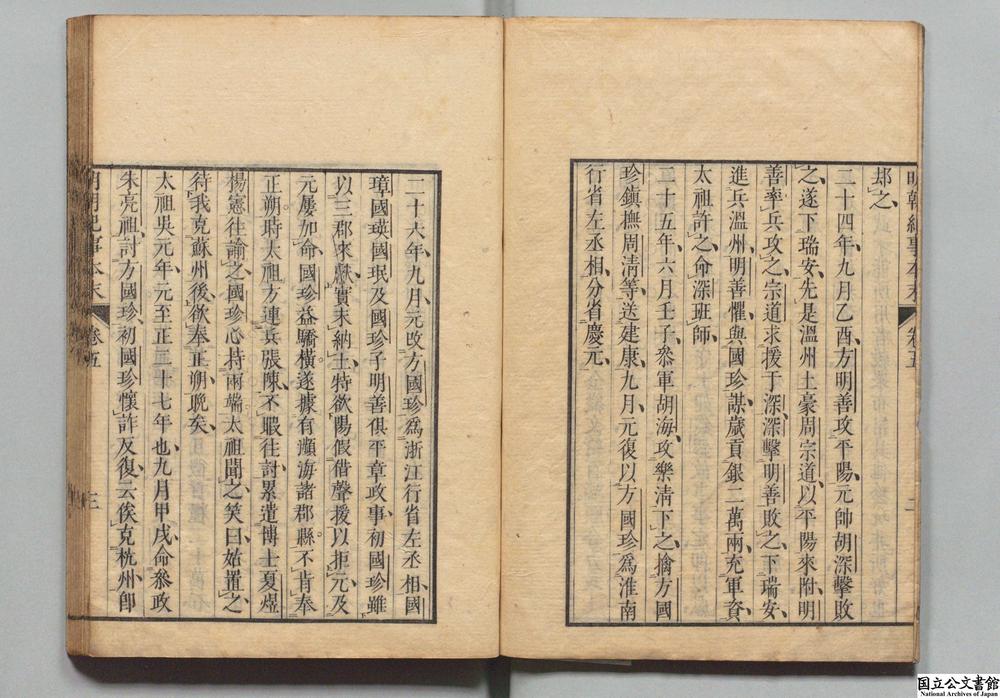 明朝紀事本末 卷五 二
却之
二十四年九月乙酉方明善攻平陽元帥胡深擊敗
之遂下瑞安先是溫州土豪周宗道以平陽來附明
善率兵攻之宗道求援于深深擊明善敗之下瑞安
進兵溫州明善懼與國珍謀歲貢銀二萬兩充軍資
太祖許之命深班師
二十五年六月壬子叅軍胡海攻樂清下之擒方國
珍鎮撫周清等送建康九月元復以方國珍爲淮南
行省左丞相分省慶元
二十六年九月元改方國珍爲浙江行省左丞相國
璋國瑛國珉及國珍子明善俱平章政事初國珍雖
以三郡來獻實未納土特欲陽假借聲援以拒元及
元屢加命國珍益驕橫遂據有瀕海諸郡縣不肯奉
正朔時太祖方連兵張陳不暇往討累遣博士夏煜
楊憲往諭之國珍心持兩端太祖聞之笑曰姑置之
待我克蘇州後欲奉正朔晚矣
太祖吳元年元至正二十七年也九月甲戌命叅政
朱亮祖討方國珍初國珍懷詐反復云俟克杭州卽
明朝紀事本末 卷五 三
国立公文書館
National Archives of Japan